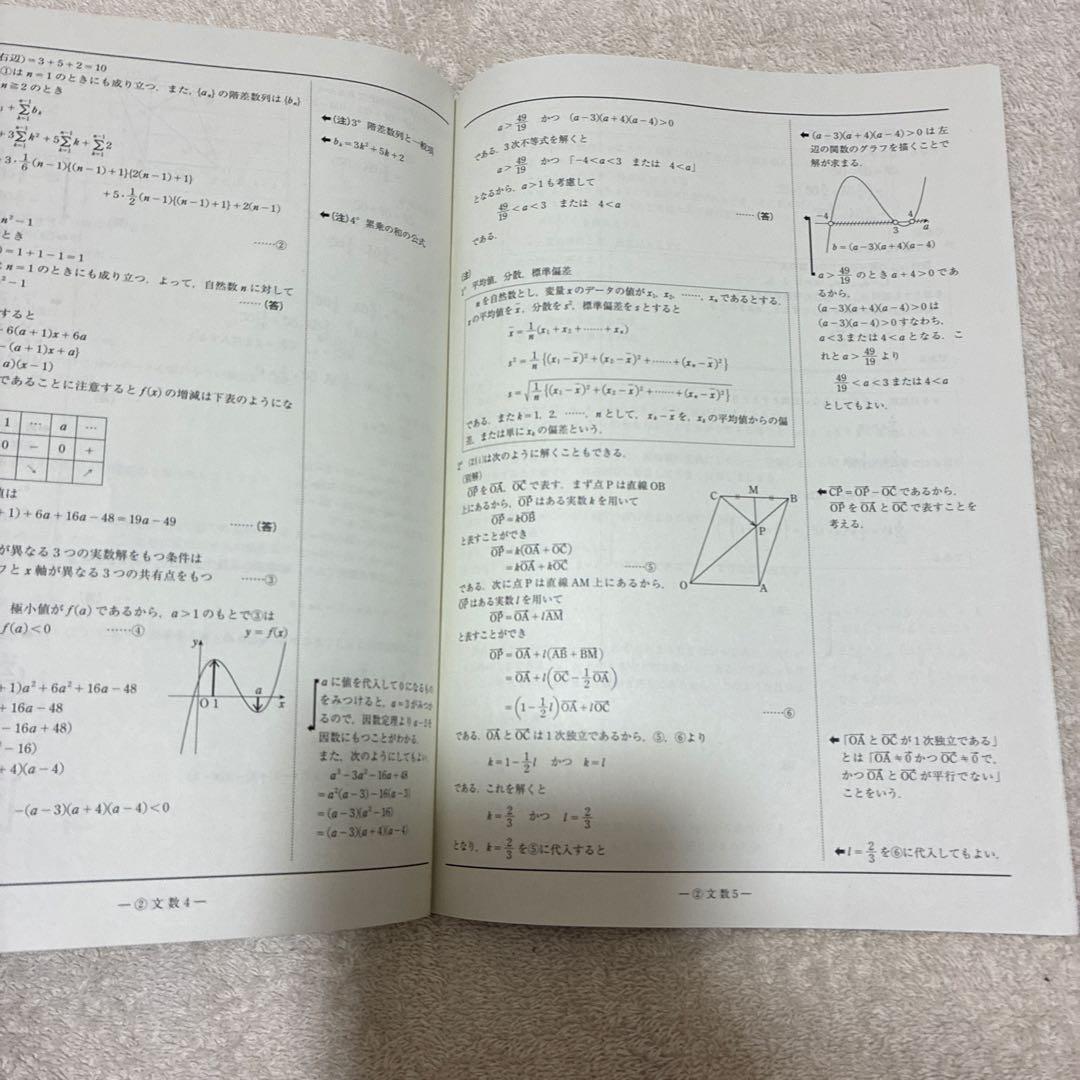 右辺) = 3 + 5 + 2 = 10
①は n = 1 のときにも成り立つ. また, {aₙ} の階差数列は {bₙ}
n ≧ 2 のとき
+ Σ[k=1→n−1] bₖ
+ 3Σ[k=1→n−1] k² + 5Σ[k=1→n−1] k + Σ[k=1→n−1] 2
+ 3・1/6 (n−1){(n−1)+1}{2(n−1)+1}
+ 5・1/2 (n−1){(n−1)+1} + 2(n−1)
n² − 1
……②
とき
) = 1 + 1 − 1 = 1
n = 1 のときにも成り立つ. よって, 自然数 n に対して
² − 1
……(答)
すると
+ 6(a+1)x + 6a
− (a+1)x + a}
a)(x−1)
であることに注意すると f(x) の増減は下表のようにな
1 … a …
0 − 0 +
↘ ↗
値は
+1) + 6a + 16a − 48 = 19a − 49 ……(答)
が異なる3つの実数解をもつ条件は
フと x 軸が異なる3つの共有点をもつ ……③
極小値が f(a) であるから, a > 1 のもとで③は
f(a) < 0 ……④
y = f(x)
y
O 1 a x
+1)a² + 6a² + 16a − 48
+ 16a − 48
− 16a + 48)
² − 16)
+ 4)(a − 4)
−(a−3)(a+4)(a−4) < 0
←(注)3° 階差数列と一般項
← bₖ = 3k² + 5k + 2
←(注)4° 累乗の和の公式
a に値を代入して0になるもの
をみつけると, a = 3 がみつか
るので, 因数定理より a − 3 を
因数にもつことがわかる.
また, 次のようにしてもよい.
a³ − 3a² − 16a + 48
= a²(a−3) − 16(a−3)
= (a−3)(a²−16)
= (a−3)(a+4)(a−4)
— ② 文 数 4 —
a > 49/19 かつ (a−3)(a+4)(a−4) > 0
である. 3次不等式を解くと
a > 49/19 かつ 「−4 < a < 3 または 4 < a」
となるから, a > 1 も考慮して
49/19 < a < 3 または 4 < a ……(答)
である.
(注)
1° 平均値, 分散, 標準偏差
n を自然数とし, 変量 x のデータの値が x₁, x₂, ……, xₙ であるとする.
x の平均値を x̄, 分散を s², 標準偏差を s とすると
x̄ = 1/n (x₁ + x₂ + …… + xₙ)
s² = 1/n {(x₁ − x̄)² + (x₂ − x̄)² + …… + (xₙ − x̄)²}
s = √(1/n {(x₁ − x̄)² + (x₂ − x̄)² + …… + (xₙ − x̄)²})
である. また k = 1, 2, ……, n として, xₖ − x̄ を, xₖ の平均値からの偏
差, または単に xₖ の偏差という.
2° (2)(i)は次のように解くこともできる.
(別解)
OP→を OA→, OC→ で表す. まず点 P は直線 OB
上にあるから, OP→ はある実数 k を用いて
OP→ = kOB→
と表すことができ
OP→ = k(OA→ + OC→)
= kOA→ + kOC→ ……⑤
である. 次に点 P は直線 AM 上にあるから,
OP→ はある実数 l を用いて
OP→ = OA→ + lAM→
と表すことができ
OP→ = OA→ + l(AB→ + BM→)
= OA→ + l(OC→ − 1/2 OA→)
= (1 − 1/2 l)OA→ + lOC→ ……⑥
である. OA→ と OC→ は1次独立であるから, ⑤, ⑥より
k = 1 − 1/2 l かつ k = l
である. これを解くと
k = 2/3 かつ l = 2/3
となり, k = 2/3 を⑤に代入すると
C M B
P
O A
←(a−3)(a+4)(a−4) > 0 は左
辺の関数のグラフを描くことで
解が求まる.
−4 3 4 a
b = (a−3)(a+4)(a−4)
a > 49/19 のとき a + 4 > 0 であ
るから,
(a−3)(a+4)(a−4) > 0 は
(a−3)(a−4) > 0 すなわち,
a < 3 または 4 < a となる. こ
れと a > 49/19 より
49/19 < a < 3 または 4 < a
としてもよい.
← CP→ = OP→ − OC→ であるから,
OP→ を OA→ と OC→ で表すことを
考える.
←「OA→ と OC→ が1次独立である」
とは「OA→ ≠ 0→ かつ OC→ ≠ 0→ で,
かつ OA→ と OC→ が平行でない」
ことをいう.
← l = 2/3 を⑥に代入してもよい.
— ② 文 数 5 —